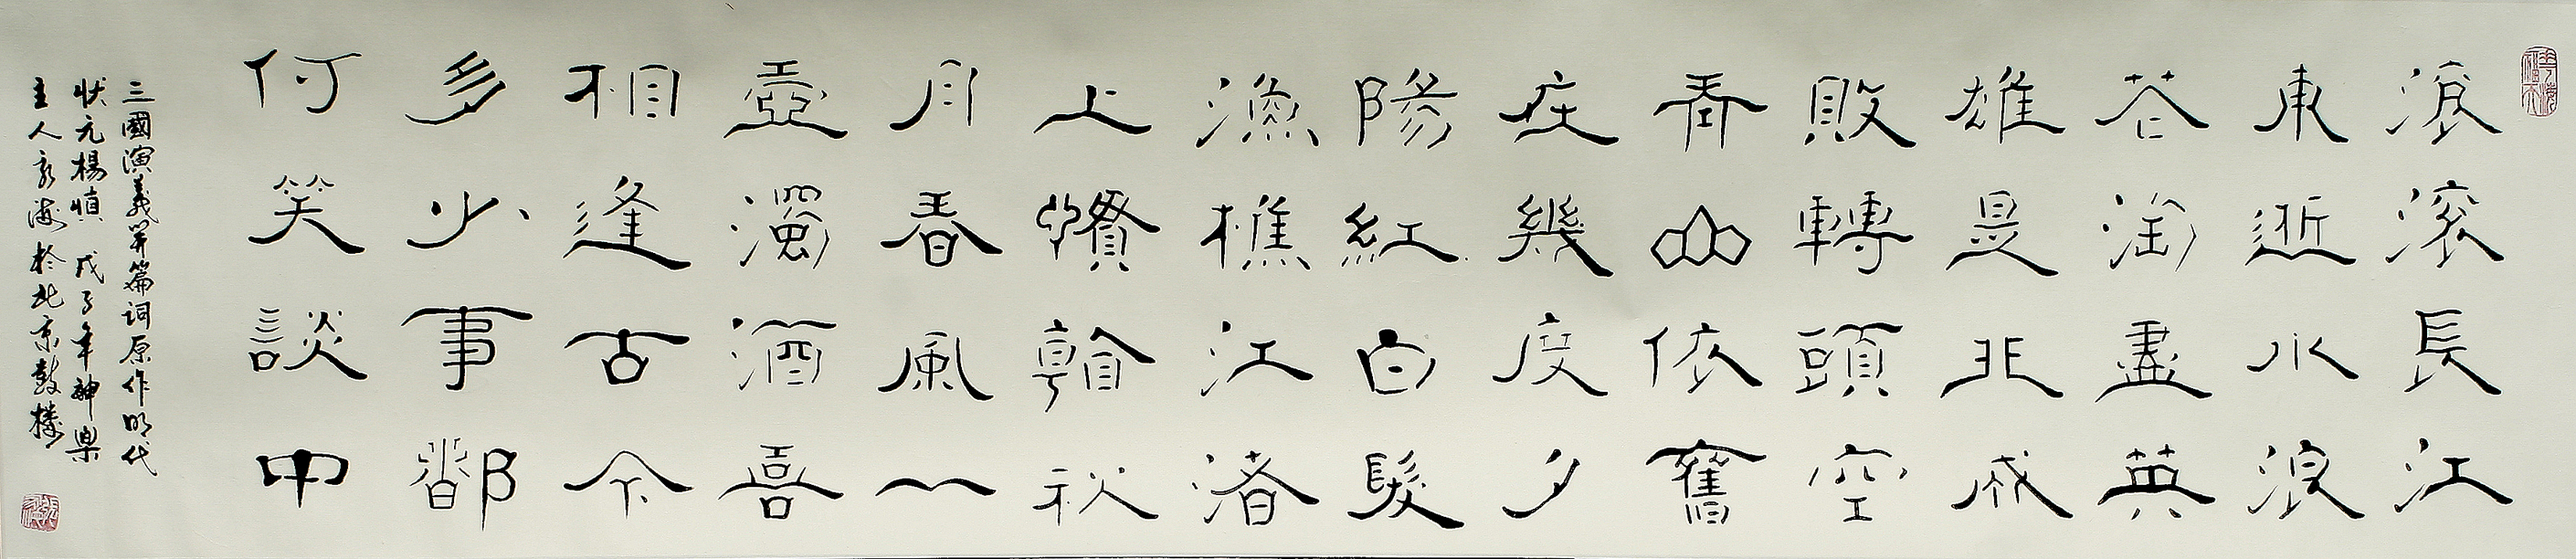 滚滚長江
東逝水浪
花淘盡英
雄是非成
敗轉頭空
青山依舊
在幾度夕
陽紅白髮
漁樵江渚
上慣看秋
月春風一
壺濁酒喜
相逢古今
多少事都
何笑談中
三國演義開篇詞原作明代
状元楊慎 戊子年神樂
主人永海於北京鼓樓